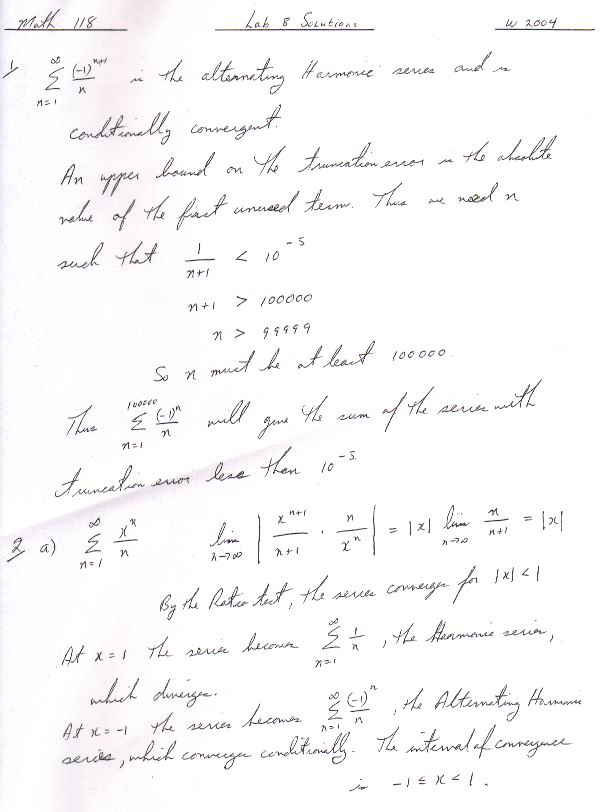 Math 118 Lab 8 Solutions W 2004
1/ ∞ Σ n=1 (-1)^(n+1)/n is the alternating Harmonic series and is
conditionally convergent.
An upper bound on the truncation error is the absolute
value of the first unused term. Thus we need n
such that 1/(n+1) < 10^-5
n+1 > 100000
n > 99999
So n must be at least 100000.
Thus 100000 Σ n=1 (-1)^n/n will give the sum of the series with
truncation error less than 10^-5.
2/ a) ∞ Σ n=1 x^n/n lim n→∞ | x^(n+1)/(n+1) · n/x^n | = |x| lim n→∞ n/(n+1) = |x|
By the Ratio test, the series converges for |x| < 1
At x = 1 the series becomes ∞ Σ n=1 1/n, the Harmonic series,
which diverges.
At x = -1 the series becomes ∞ Σ n=1 (-1)^n/n, the Alternating Harmonic
series, which converges conditionally. The interval of convergence
is -1 ≤ x < 1.